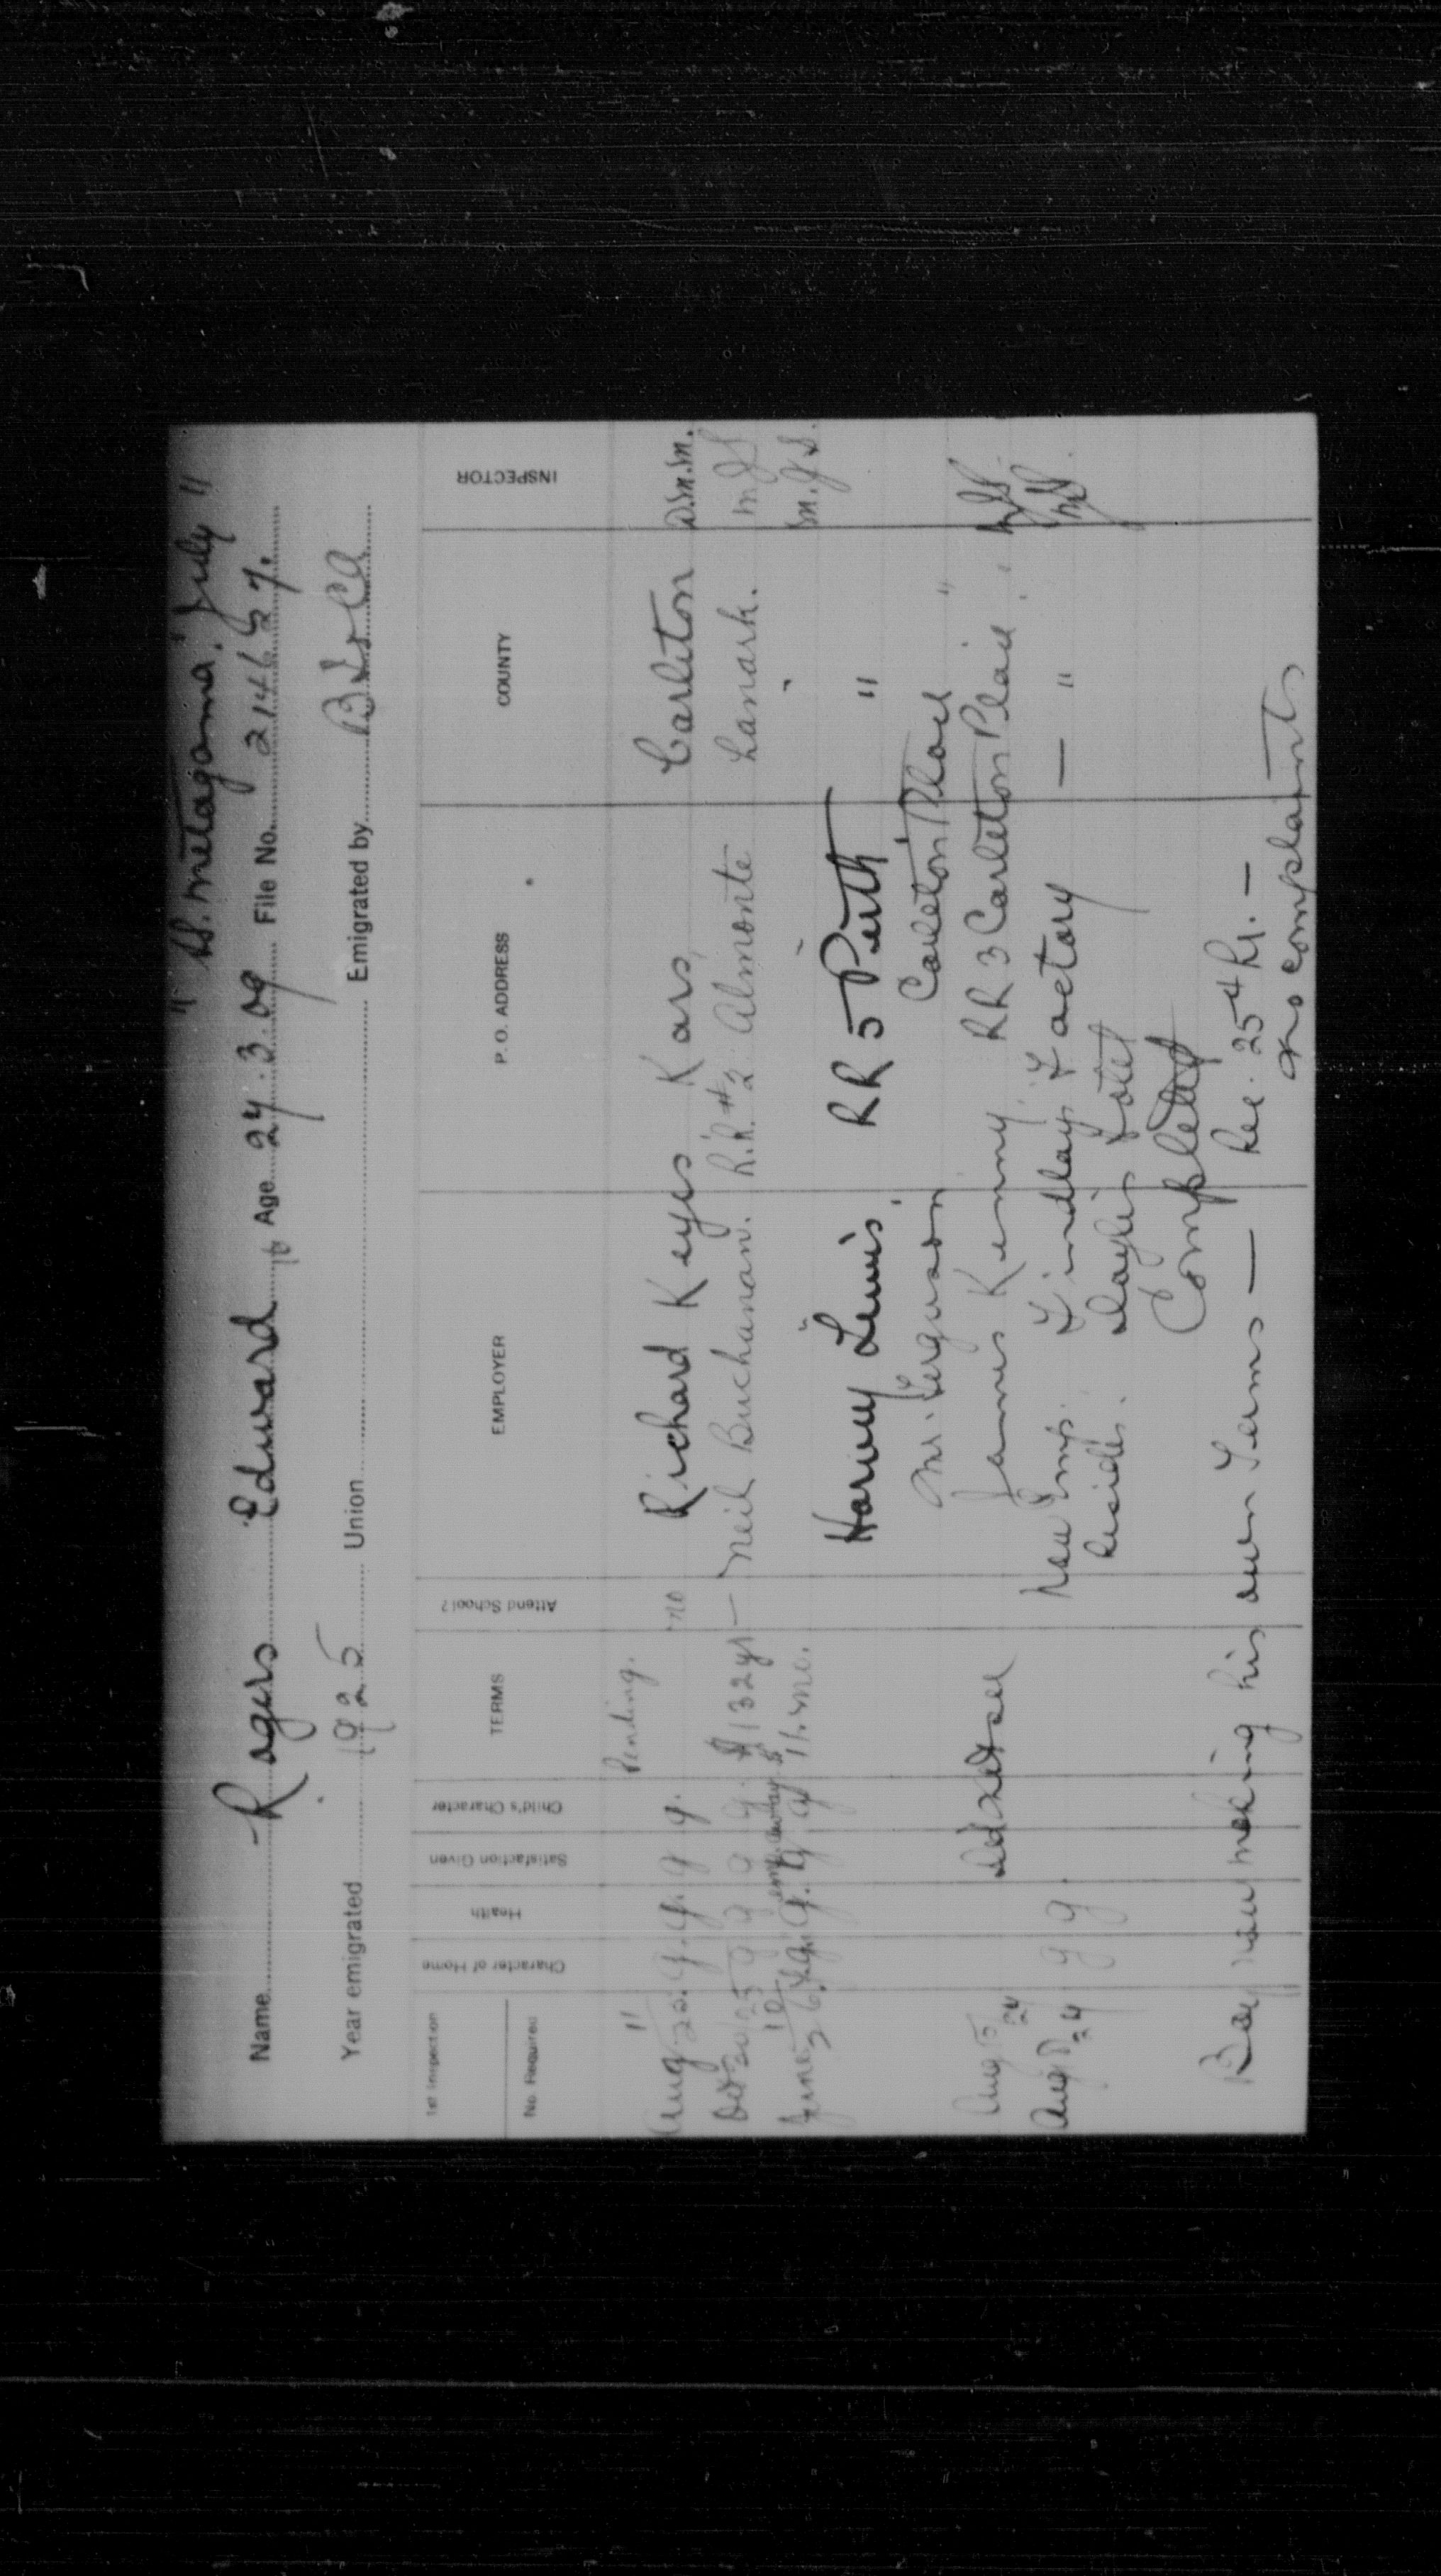 " SS. Metagama. July "
Name Rogers Edward 16 Age 27.3.09 File No. 214627.
Year emigrated 1925 Union Emigrated by
1st Inspection Character of Home Health Satisfaction Given Child's Character TERMS Attend School? EMPLOYER P. O. ADDRESS COUNTY INSPECTOR
No. Required
Pending.
Aug 11 25. g. g. g g. no Richard Keyes Kars, Carleton D.M.M.
Oct 30/25 g g g g. $132 yr — Neil Buchanan. R.R.#2 Almonte Lanark. M.J.S
June 10 26 g. g. g. 11. mo. M.J.S.
Harvey Lewis, RR 5 Perth "
Mr. Ferguson Carleton Place "
Aug 5 24 James Kenny RR 3 Carleton Place " MJS.
Aug 5 24 g g. Now Emp. Findlay Factory — " MJS.
Resides. Hotel
Completed
Boy now making his own Terms — Rec. 25¢ hr. —
no complaints